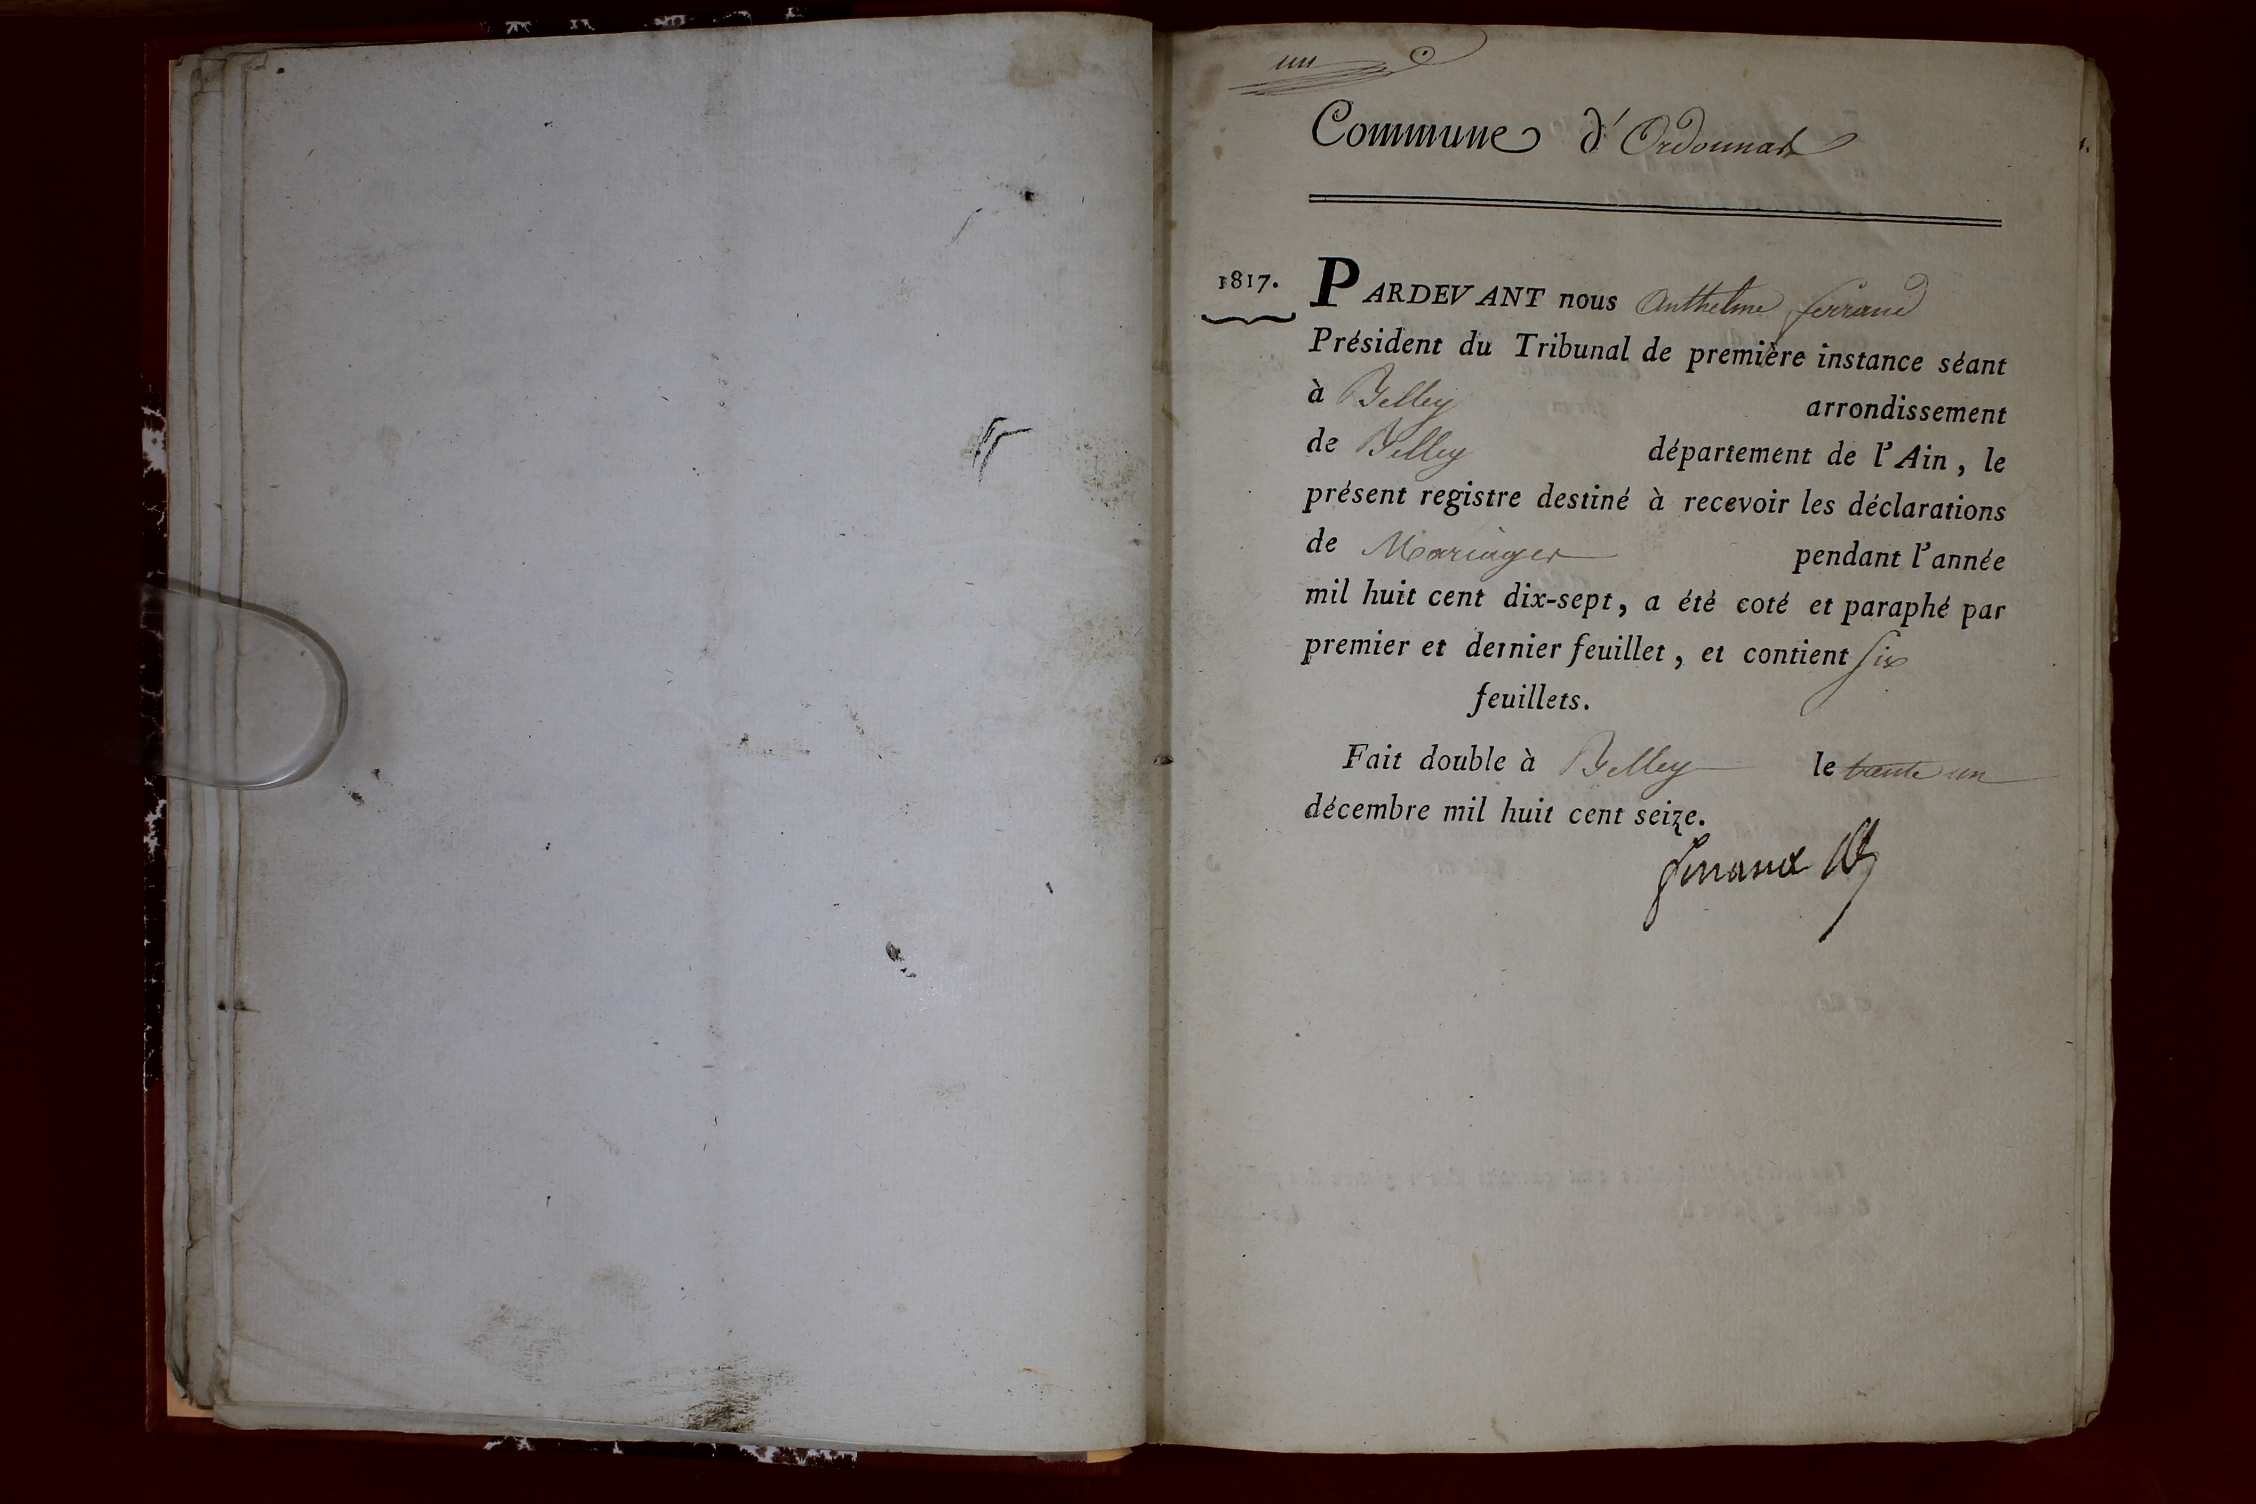 un
Commune d'Ordonnat
1817. PARDEVANT nous Anthelme ferrand
Président du Tribunal de première instance séant
à Belley arrondissement
de Belley département de l'Ain, le
présent registre destiné à recevoir les déclarations
de Mariages pendant l'année
mil huit cent dix-sept, a été coté et paraphé par
premier et dernier feuillet, et contient six
feuillets.
Fait double à Belley le trente un
décembre mil huit cent seize.
ferrand